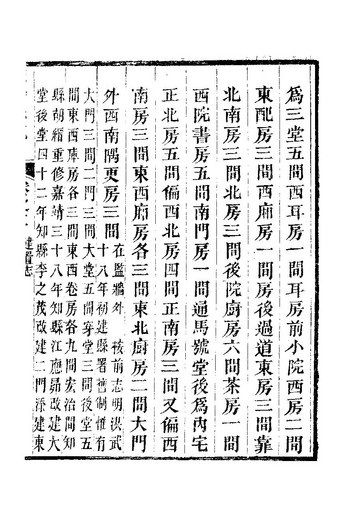 為三堂五間西耳房一間耳房前小院西房二間
東配房三間西廂房一間房後過道東房三間靠
北南房三間北房三間後院廚房六間茶房一間
西院書房五間南門房一間通馬號堂後為內宅
正北房五間偏西北房四間正南房三間又偏西
南房三間東西廂房各三間東北廚房二間大門
外西南隅更房三間
在監牆外 核前志明洪武
十八年初建縣署舊制惟有
大門三間二門三間大堂五間穿堂三間後堂五
間東西庫房各三間東西卷房各九間宏治間知
縣胡縉重修嘉靖三十八年知縣江應昴改建大
堂後堂四十二年知縣李之茂改建二門添建東
建置志